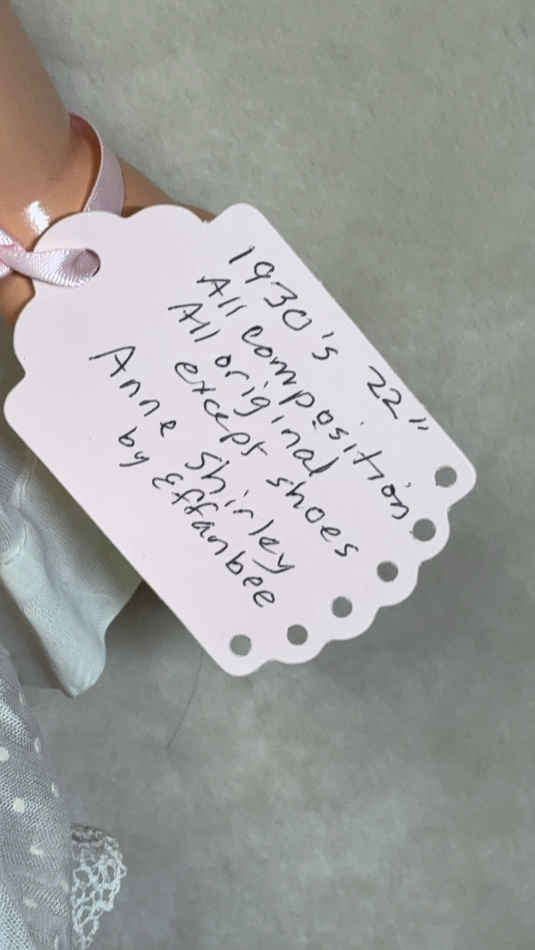 1930's 22"
All composition
All original
except shoes
Anne Shirley
by Effanbee